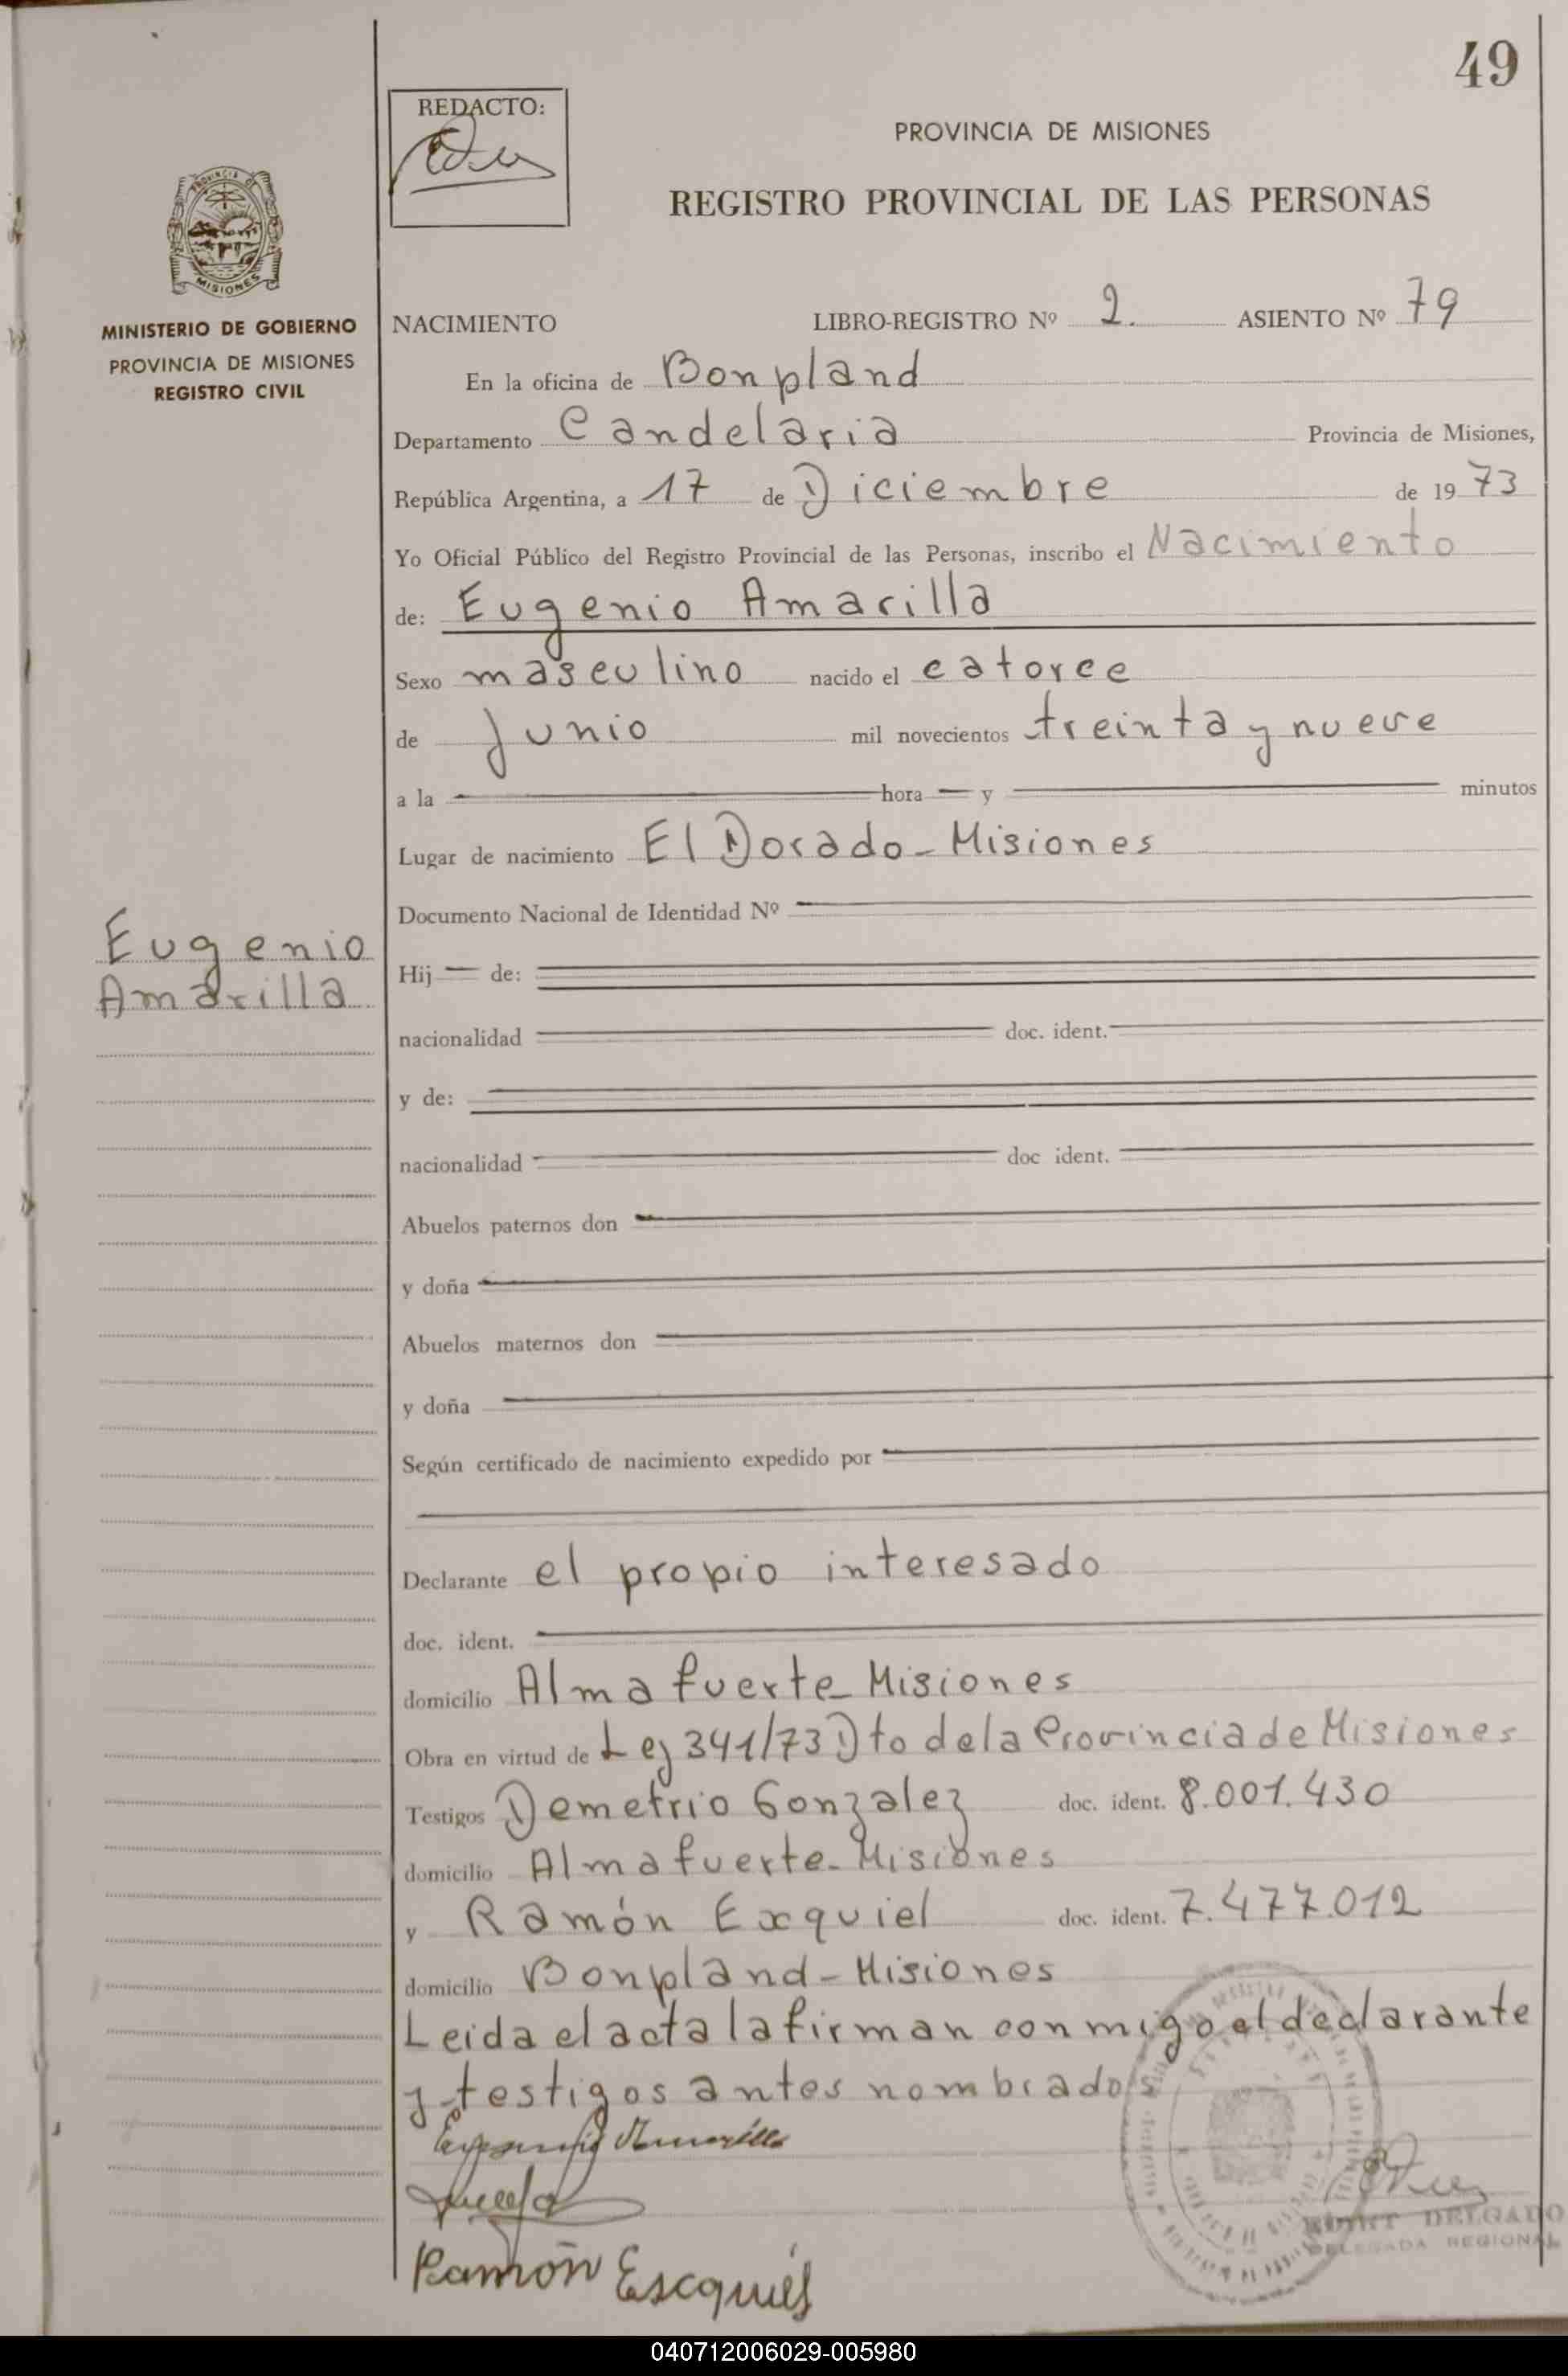 49
REDACTO:
PROVINCIA DE MISIONES
REGISTRO PROVINCIAL DE LAS PERSONAS
MISIONES
MINISTERIO DE GOBIERNO
PROVINCIA DE MISIONES
REGISTRO CIVIL
NACIMIENTO LIBRO-REGISTRO Nº 2. ASIENTO Nº 79
En la oficina de Bonpland
Departamento Candelaria Provincia de Misiones,
República Argentina, a 17 de Diciembre de 1973
Yo Oficial Público del Registro Provincial de las Personas, inscribo el Nacimiento
de: Eugenio Amarilla
Sexo masculino nacido el catorce
de Junio mil novecientos treinta y nueve
a la hora y minutos
Lugar de nacimiento El Dorado - Misiones
Documento Nacional de Identidad Nº
Eugenio
Amarilla
Hij de:
nacionalidad doc. ident.
y de:
nacionalidad doc ident.
Abuelos paternos don
y doña
Abuelos maternos don
y doña
Según certificado de nacimiento expedido por
Declarante el propio interesado
doc. ident.
domicilio Almafuerte Misiones
Obra en virtud de Ley 341/73 Dto de la Provincia de Misiones
Testigos Demetrio Gonzalez doc. ident. 8.001.430
domicilio Almafuerte - Misiones
y Ramón Exquiel doc. ident. 7.477.012
domicilio Bonpland - Misiones
Leida el acta la firman conmigo el declarante
y testigos antes nombrados
Eugenio Amarilla
Ramón Escquiel
DELGADO
DELEGADA REGIONAL
040712006029-005980